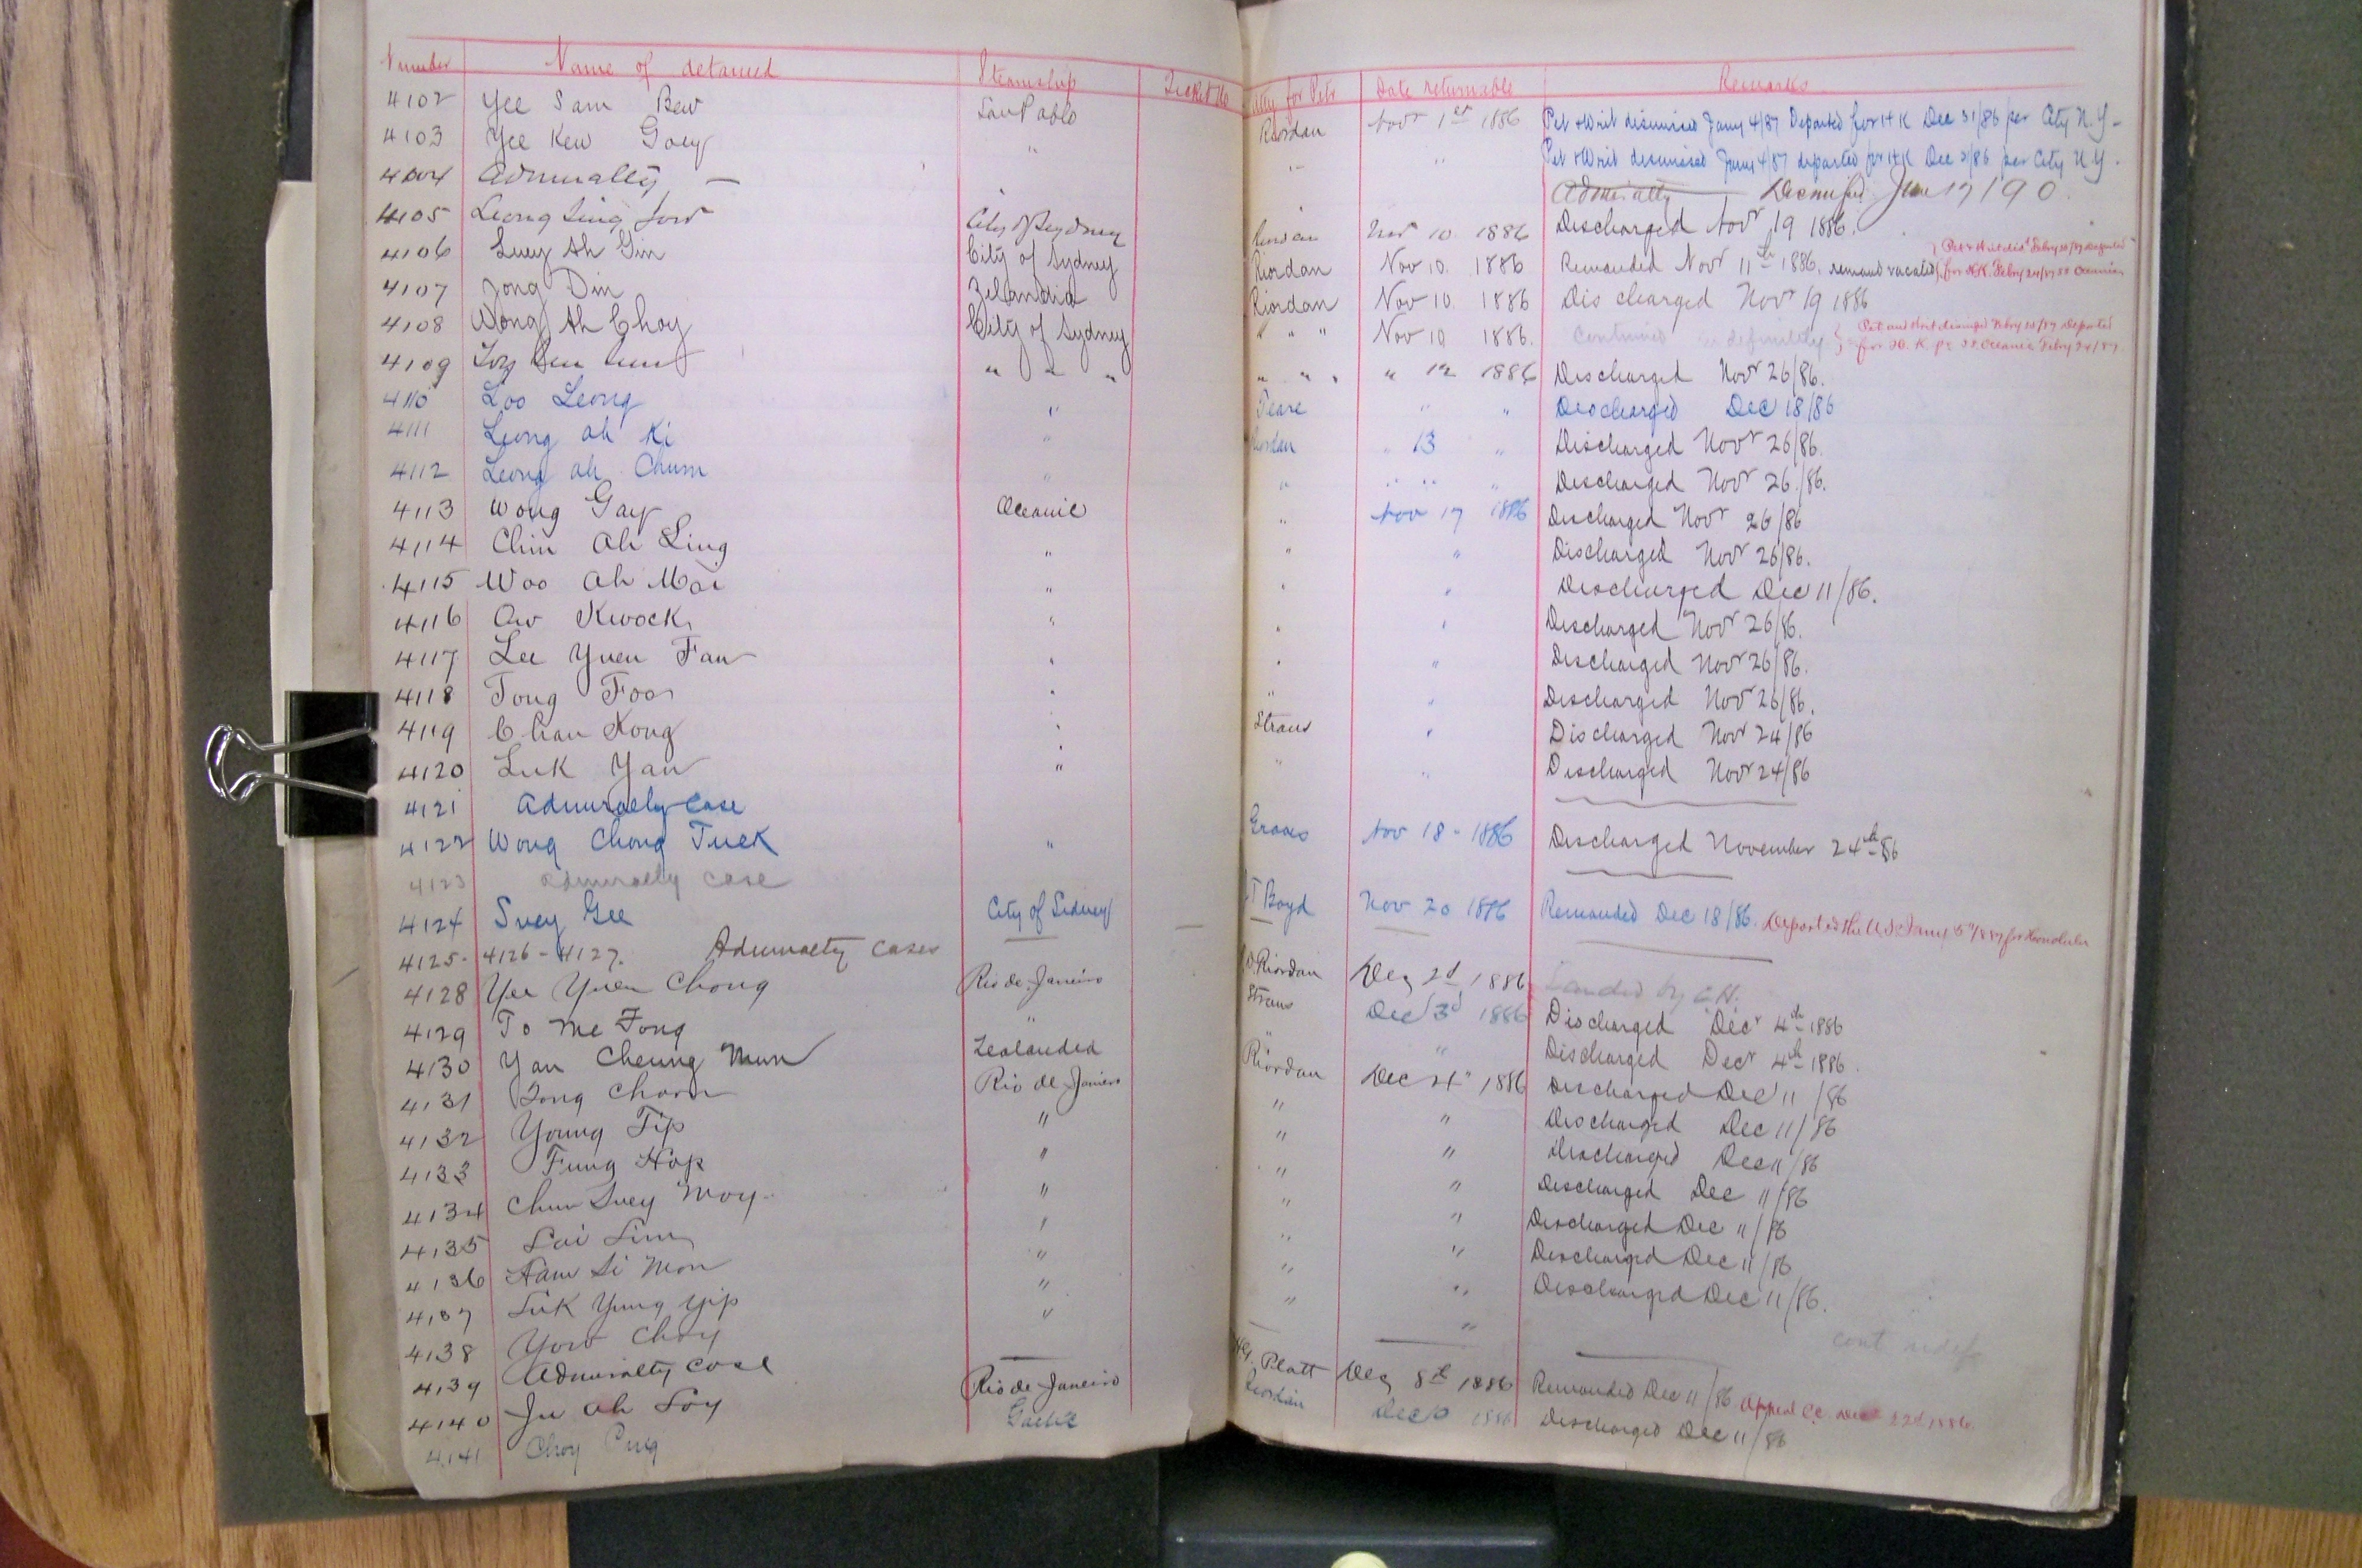 Number Name of detained Steamship Ticket No Atty for Petr Date returnable Remarks
4102 Yee Sam Bew San Pablo Riordan Novr 1st 1886 Pet & Writ dismissed Jany 4/87 Departed for H K Dec 31/86 per City N.Y-
4103 Yee Kew Goey " " " Pet & Writ dismissed Jany 4/87 departed for H K Dec 31/86 per City N.Y.
4104 Admiralty — Admiralty Dismissed June 17/90.
4105 Leong Sing City of Sydney Riordan Nov 10 1886 Discharged Novr 19 1886.
4106 Luey Ah Gin City of Sydney Riordan Nov 10. 1886 Remanded Novr 11th 1886. remand vacated } Pet & Writ dis'd Febry 10/87 Departed for H.K. Febry 24/87 SS Oceanic
4107 Jong Din Zelandia Riordan Nov 10 1886 Discharged Novr 19 1886
4108 Wong Ah Choy City of Sydney " " " Nov 10 1886. Continued indefinitely } Pet and Writ dismissed Febry 10/87 Departed for H. K. pr SS Oceanic Febry 24/87.
4109 " " " " " " " 12 1886 Discharged Novr 26/86.
4110 Loo Leong " Teare " " Discharged Dec 18/86
4111 Leong ah Ki " Riordan " 13 " Discharged Novr 26/86.
4112 Leong ah Chum " " " " " Discharged Novr 26/86.
4113 Wong Gay Oceanic " Nov 17 1886 Discharged Novr 26/86
4114 Chin Ah Ling " " " Discharged Novr 26/86.
4115 Woo Ah Moi " " " Discharged Dec 11/86.
4116 Ow Kwock " " " Discharged Novr 26/86.
4117 Lee Yuen Fan " " " Discharged Novr 26/86.
4118 Tong Foo " " " Discharged Novr 26/86.
4119 Chan Kong " Straus " Discharged Novr 24/86
4120 Luk Yan " " " Discharged Novr 24/86
4121 Admiralty Case
4122 Wong Chong Tuck " Graves Nov 18 - 1886 Discharged November 24th 86
4123 Admiralty Case
4124 Suey Gee City of Sidney — T Boyd Nov 20 1886 Remanded Dec 18/86. Departed the U S Jany 5"/1887 for Honolulu
4125 - 4126 - 4127. Admiralty Cases
4128 Yee Yuen Chong Rio de Janeiro Riordan Dec 2d 1886 Landed by C.H.
4129 To Me Fong " Straus Dec 3d 1886 Discharged Decr 4th 1886
4130 Yan Cheung Mun Zealandia " " Discharged Decr 4th 1886.
4131 Tong Choon Rio de Janiero Riordan Dec 4" 1886 Discharged Dec 11/86
4132 Young Tip " " " Discharged Dec 11/86
4133 Fung Hop " " " Discharged Dec 11/86
4134 Chun Suey Moy " " " Discharged Dec 11/86
4135 Lai Lim " " " Discharged Dec 11/86
4136 Li Mon " " " Discharged Dec 11/86
4137 Luk Yung Yip " " " Discharged Dec 11/86.
4138 Yow Choy " " " cont indef
4139 Admiralty Case
4140 Ju Ah Soy Rio de Janeiro Platt Dec 8th 1886 Remanded Dec 11/86 Appeal C.C. Dec 22d 1886.
4141 Choy Ping Gaelic Riordan Dec 1886 Discharged Dec 11/86